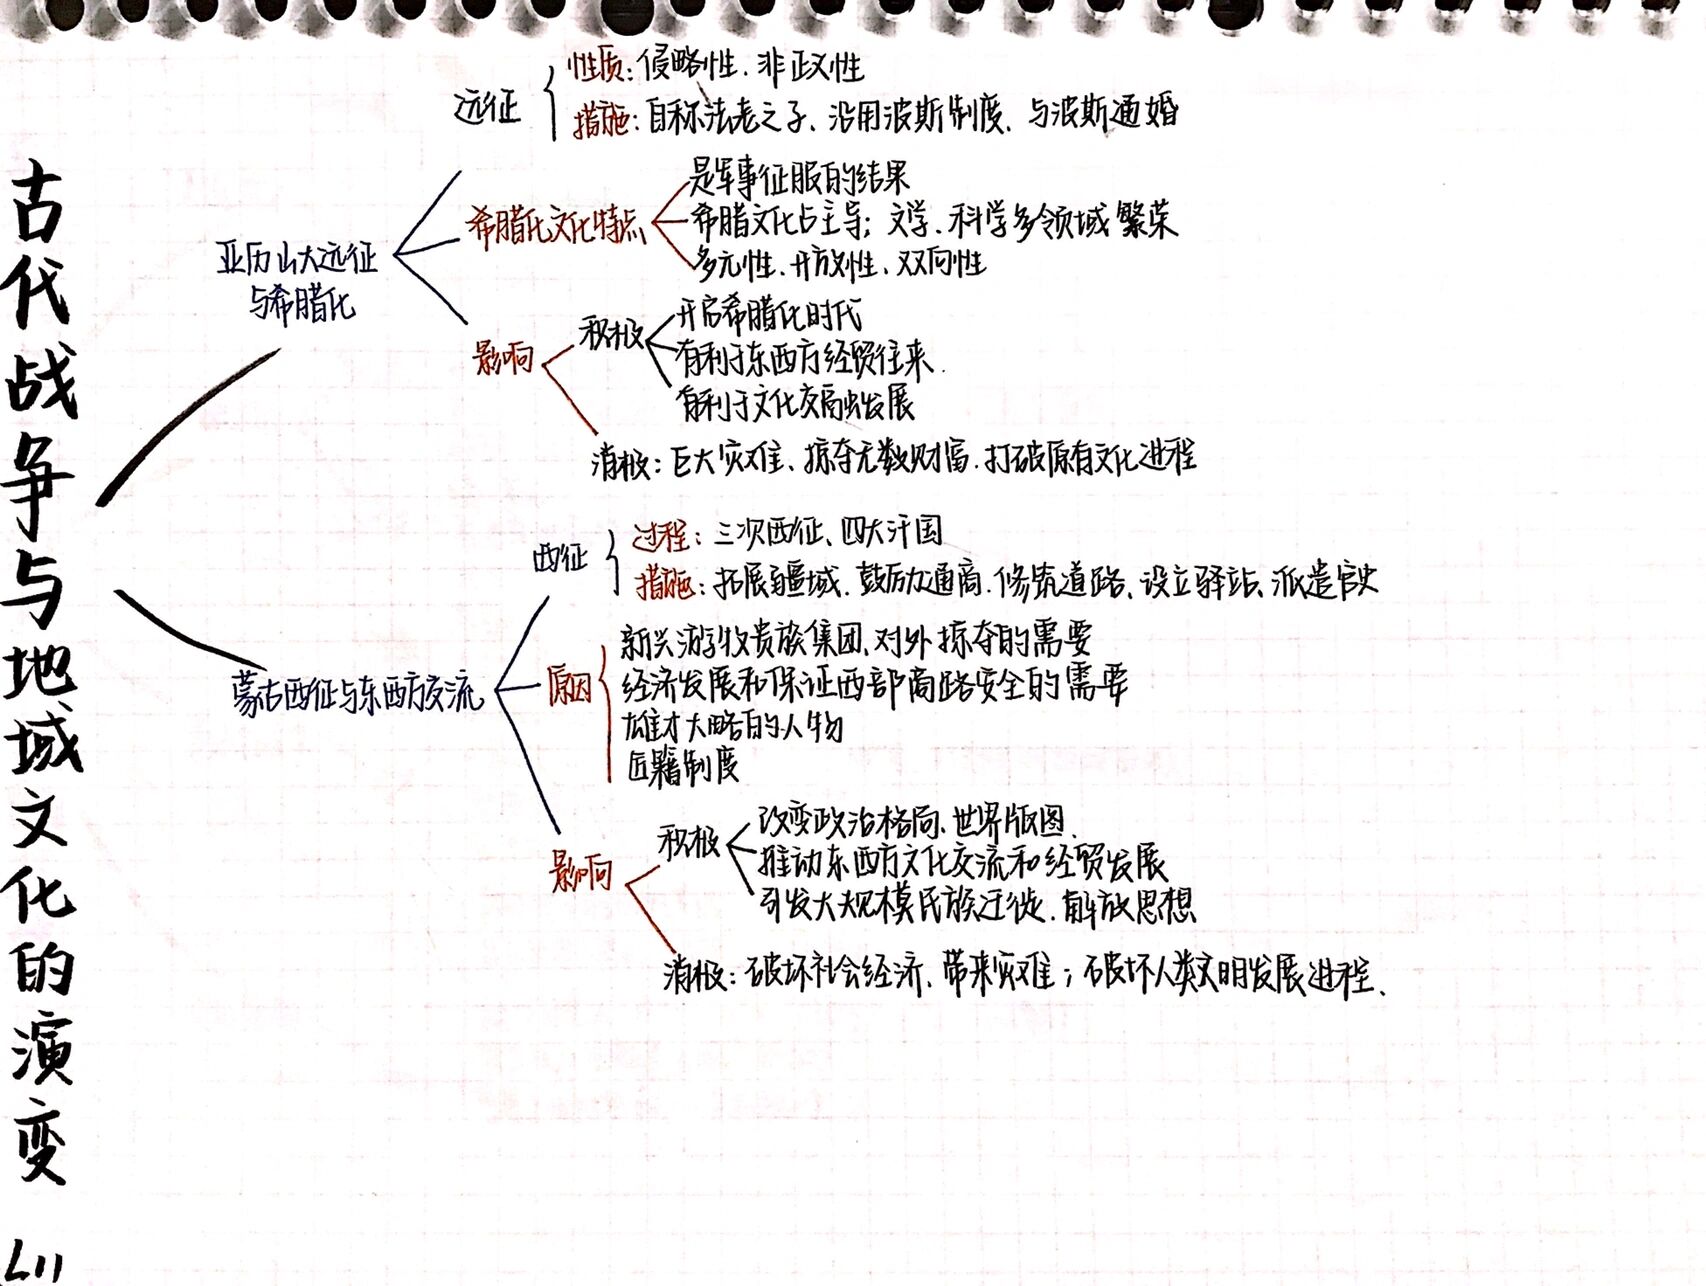 古代战争与地域文化的演变 L11
亚历山大远征
与希腊化
远征
性质:侵略性、非正义性
措施:自称法老之子、沿用波斯制度、与波斯通婚
希腊化文化特点
是军事征服的结果
希腊文化占主导;文学、科学多领域繁荣
多元性、开放性、双向性
影响
积极
开启希腊化时代
有利于东西方经贸往来.
有利于文化交融发展
消极:巨大灾难、掠夺无数财富、打破原有文化进程
蒙古西征与东西方交流
西征
过程:三次西征、四大汗国
措施:拓展疆域、鼓励通商、修筑道路、设立驿站、派遣官吏
原因
新兴游牧贵族集团、对外掠夺的需要
经济发展和保证西部商路安全的需要
雄才大略的人物
匠籍制度
影响
积极
改变政治格局、世界版图、
推动东西方文化交流和经贸发展
引发大规模民族迁徙、解放思想
消极:破坏社会经济、带来灾难;破坏人类文明发展进程、